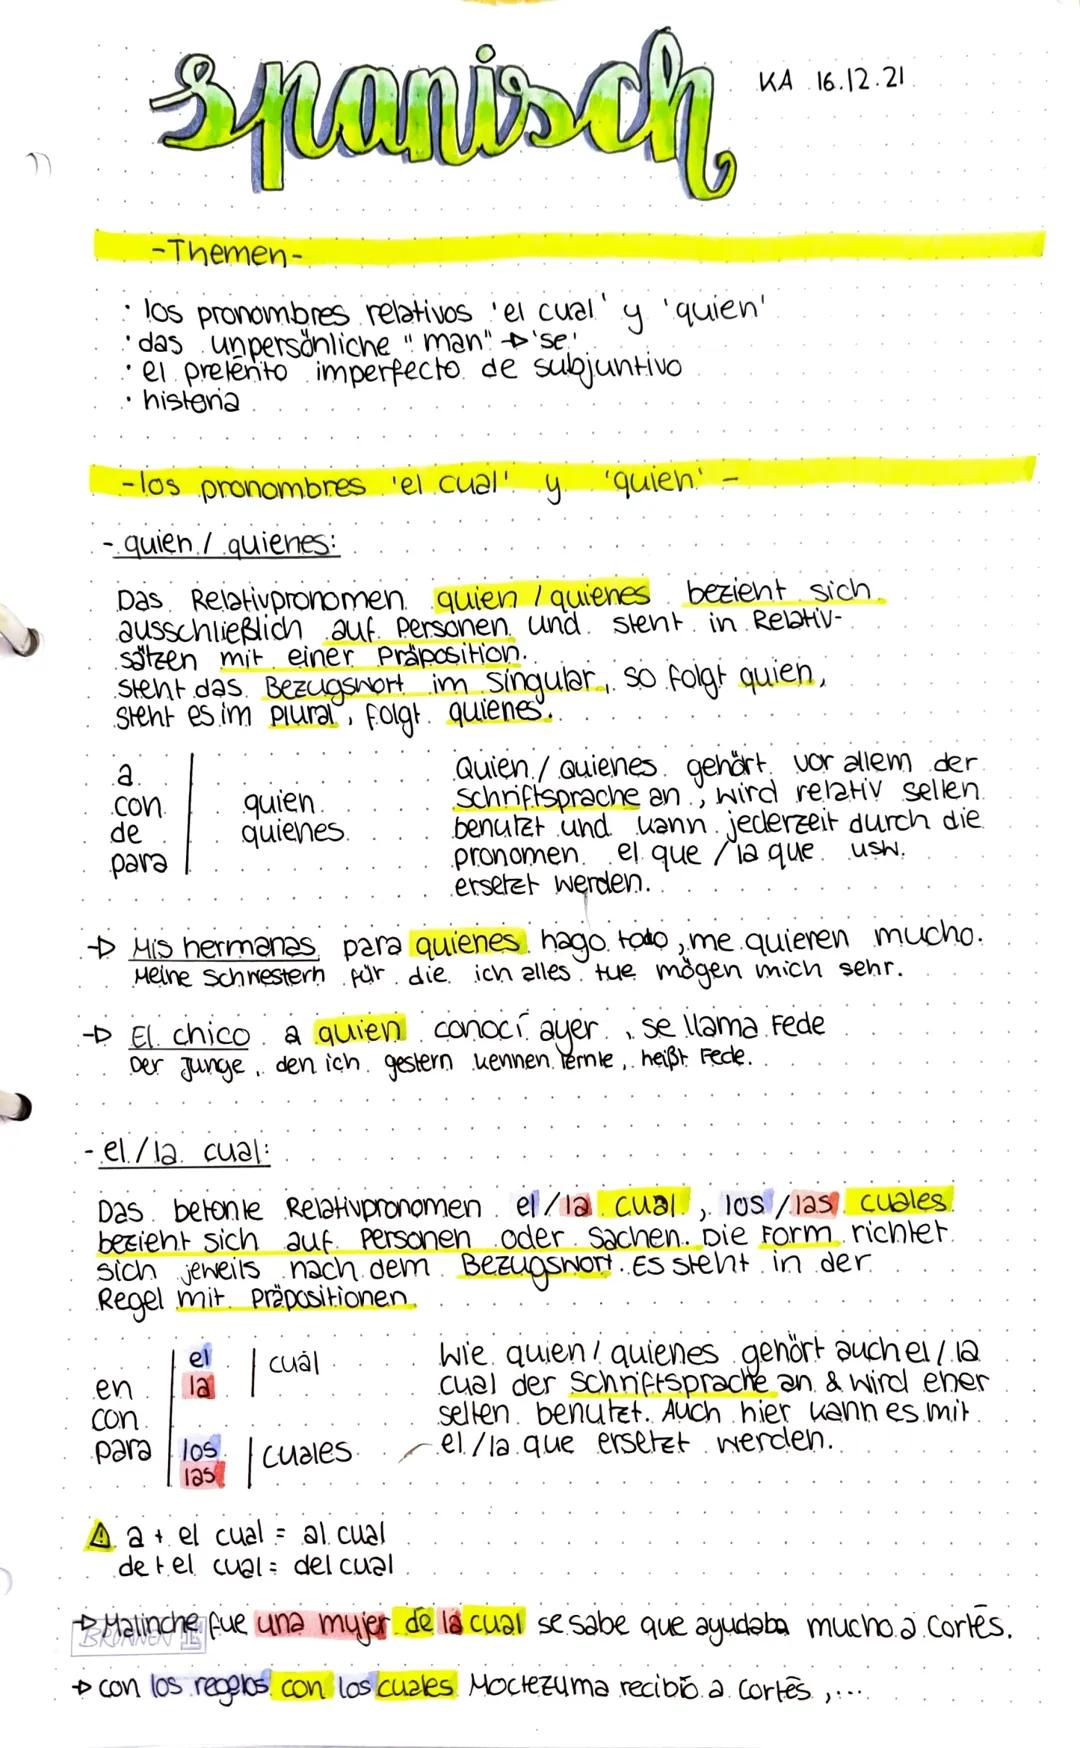 spanisch
KA 16.12.21
-Themen-
· los pronombres relativos 'el cual' y 'quien'
· das unpersönliche "man" → 'se'
· el pretérito imperfecto de subjuntivo
· historia
- los pronombres 'el cual' y 'quien' -
- quien / quienes:
Das Relativpronomen quien / quienes bezieht sich
ausschließlich auf Personen und steht in Relativ-
sätzen mit einer Präposition.
Steht das Bezugswort im Singular, so folgt quien,
steht es im Plural, folgt quienes.
a
con
de
para
quien
quienes
Quien / Quienes gehört vor allem der
Schriftsprache an, wird relativ selten
benutzt und kann jederzeit durch die
pronomen el que / la que usw.
ersetzt werden.
→ Mis hermanas para quienes hago todo, me quieren mucho.
Meine Schwestern für die ich alles tue mögen mich sehr.
→ El chico a quien conocí ayer, se llama Fede
Der Junge, den ich gestern kennen lernte, heißt Fede.
- el / la cual:
Das betonte Relativpronomen el / la cual, los / las cuales
bezieht sich auf Personen oder Sachen. Die Form richtet
sich jeweils nach dem Bezugswort. Es steht in der
Regel mit Präpositionen.
en
con
para
el
la
cual
los
las
cuales
Wie quien / quienes gehört auch el / la
cual der Schriftsprache an & wird eher
selten benutzt. Auch hier kann es mit
el / la que ersetzt werden.
⚠ a + el cual = al cual
de + el cual = del cual
→ Malinche fue una mujer de la cual se sabe que ayudaba mucho a Cortés.
BRUNNEN
→ con los regelos con los cuales Moctezuma recibió a Cortés, ...